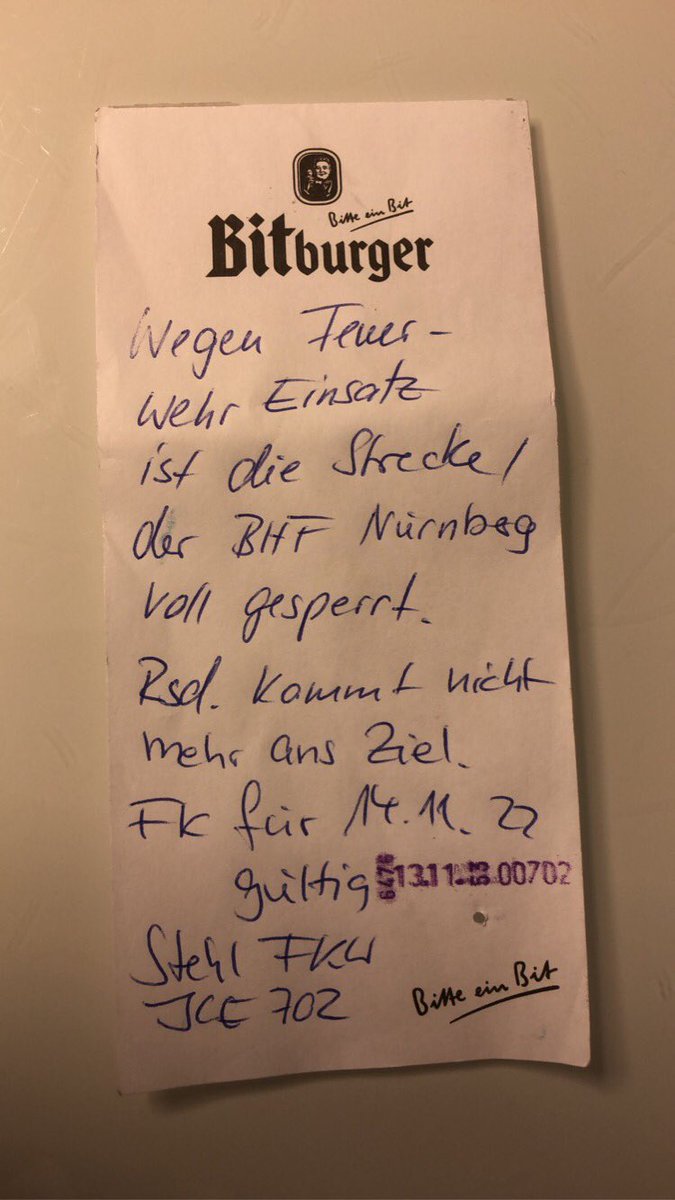 Bitte ein Bit
Bitburger
Wegen Feuer-
wehr Einsatz
ist die Strecke/
der BHF Nürnberg
voll gesperrt.
Rsd. kommt nicht
mehr ans Ziel.
FK für 14.11.22
gültig 6476 13.11. 00702
Stehl FKW
ICE 702
Bitte ein Bit